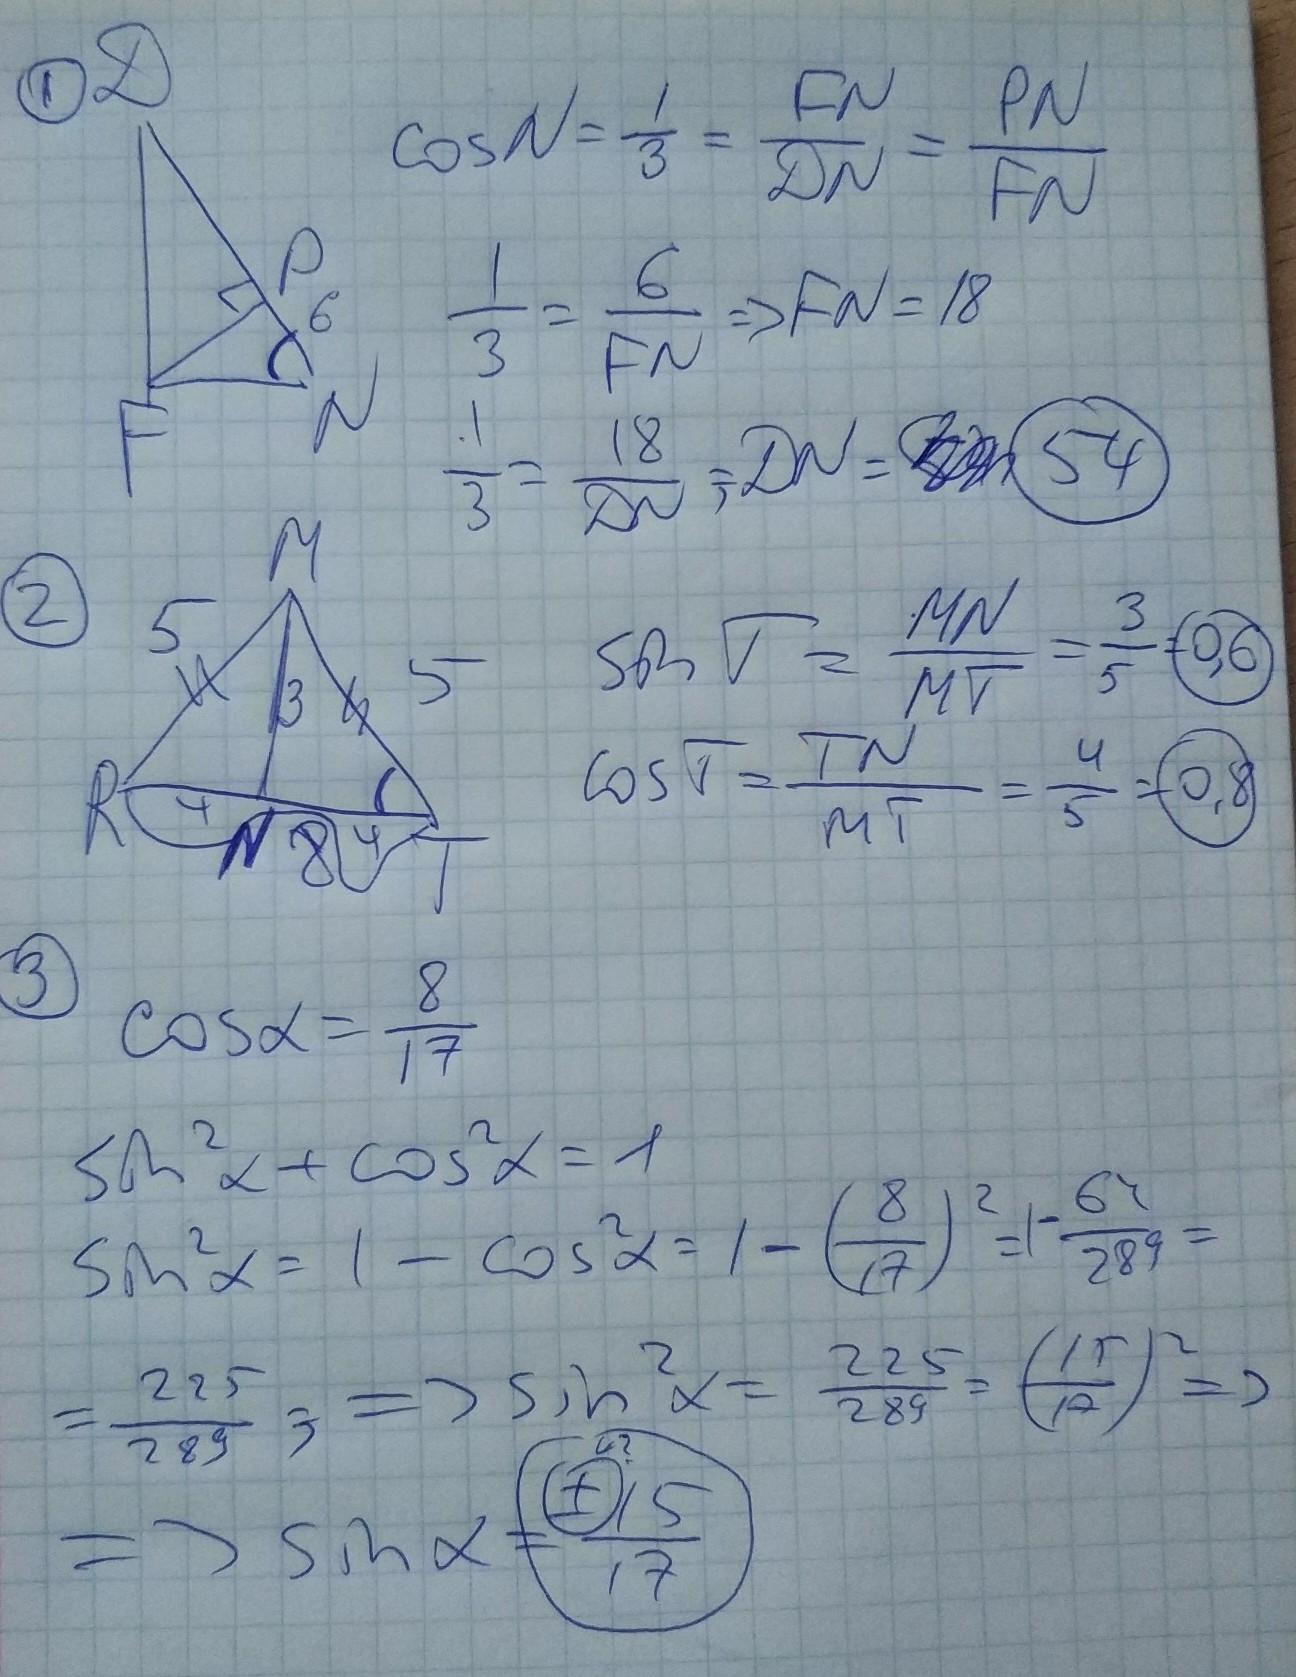 ① D
cos N = 1/3 = FN/DN = PN/FN
P
6
F N
1/3 = 6/FN => FN = 18
1/3 = 18/DN ; DN = 54
② M
5 5
3
R 4 N 8 4 T
sin T = MN/MT = 3/5 = 0,6
cos T = TN/MT = 4/5 = 0,8
③
cosα = 8/17
sin²α + cos²α = 1
sin²α = 1 - cos²α = 1 - (8/17)² = 1 - 64/289 =
= 225/289 ; => sin²α = 225/289 = (15/17)² =>
=> sinα = ± 15/17